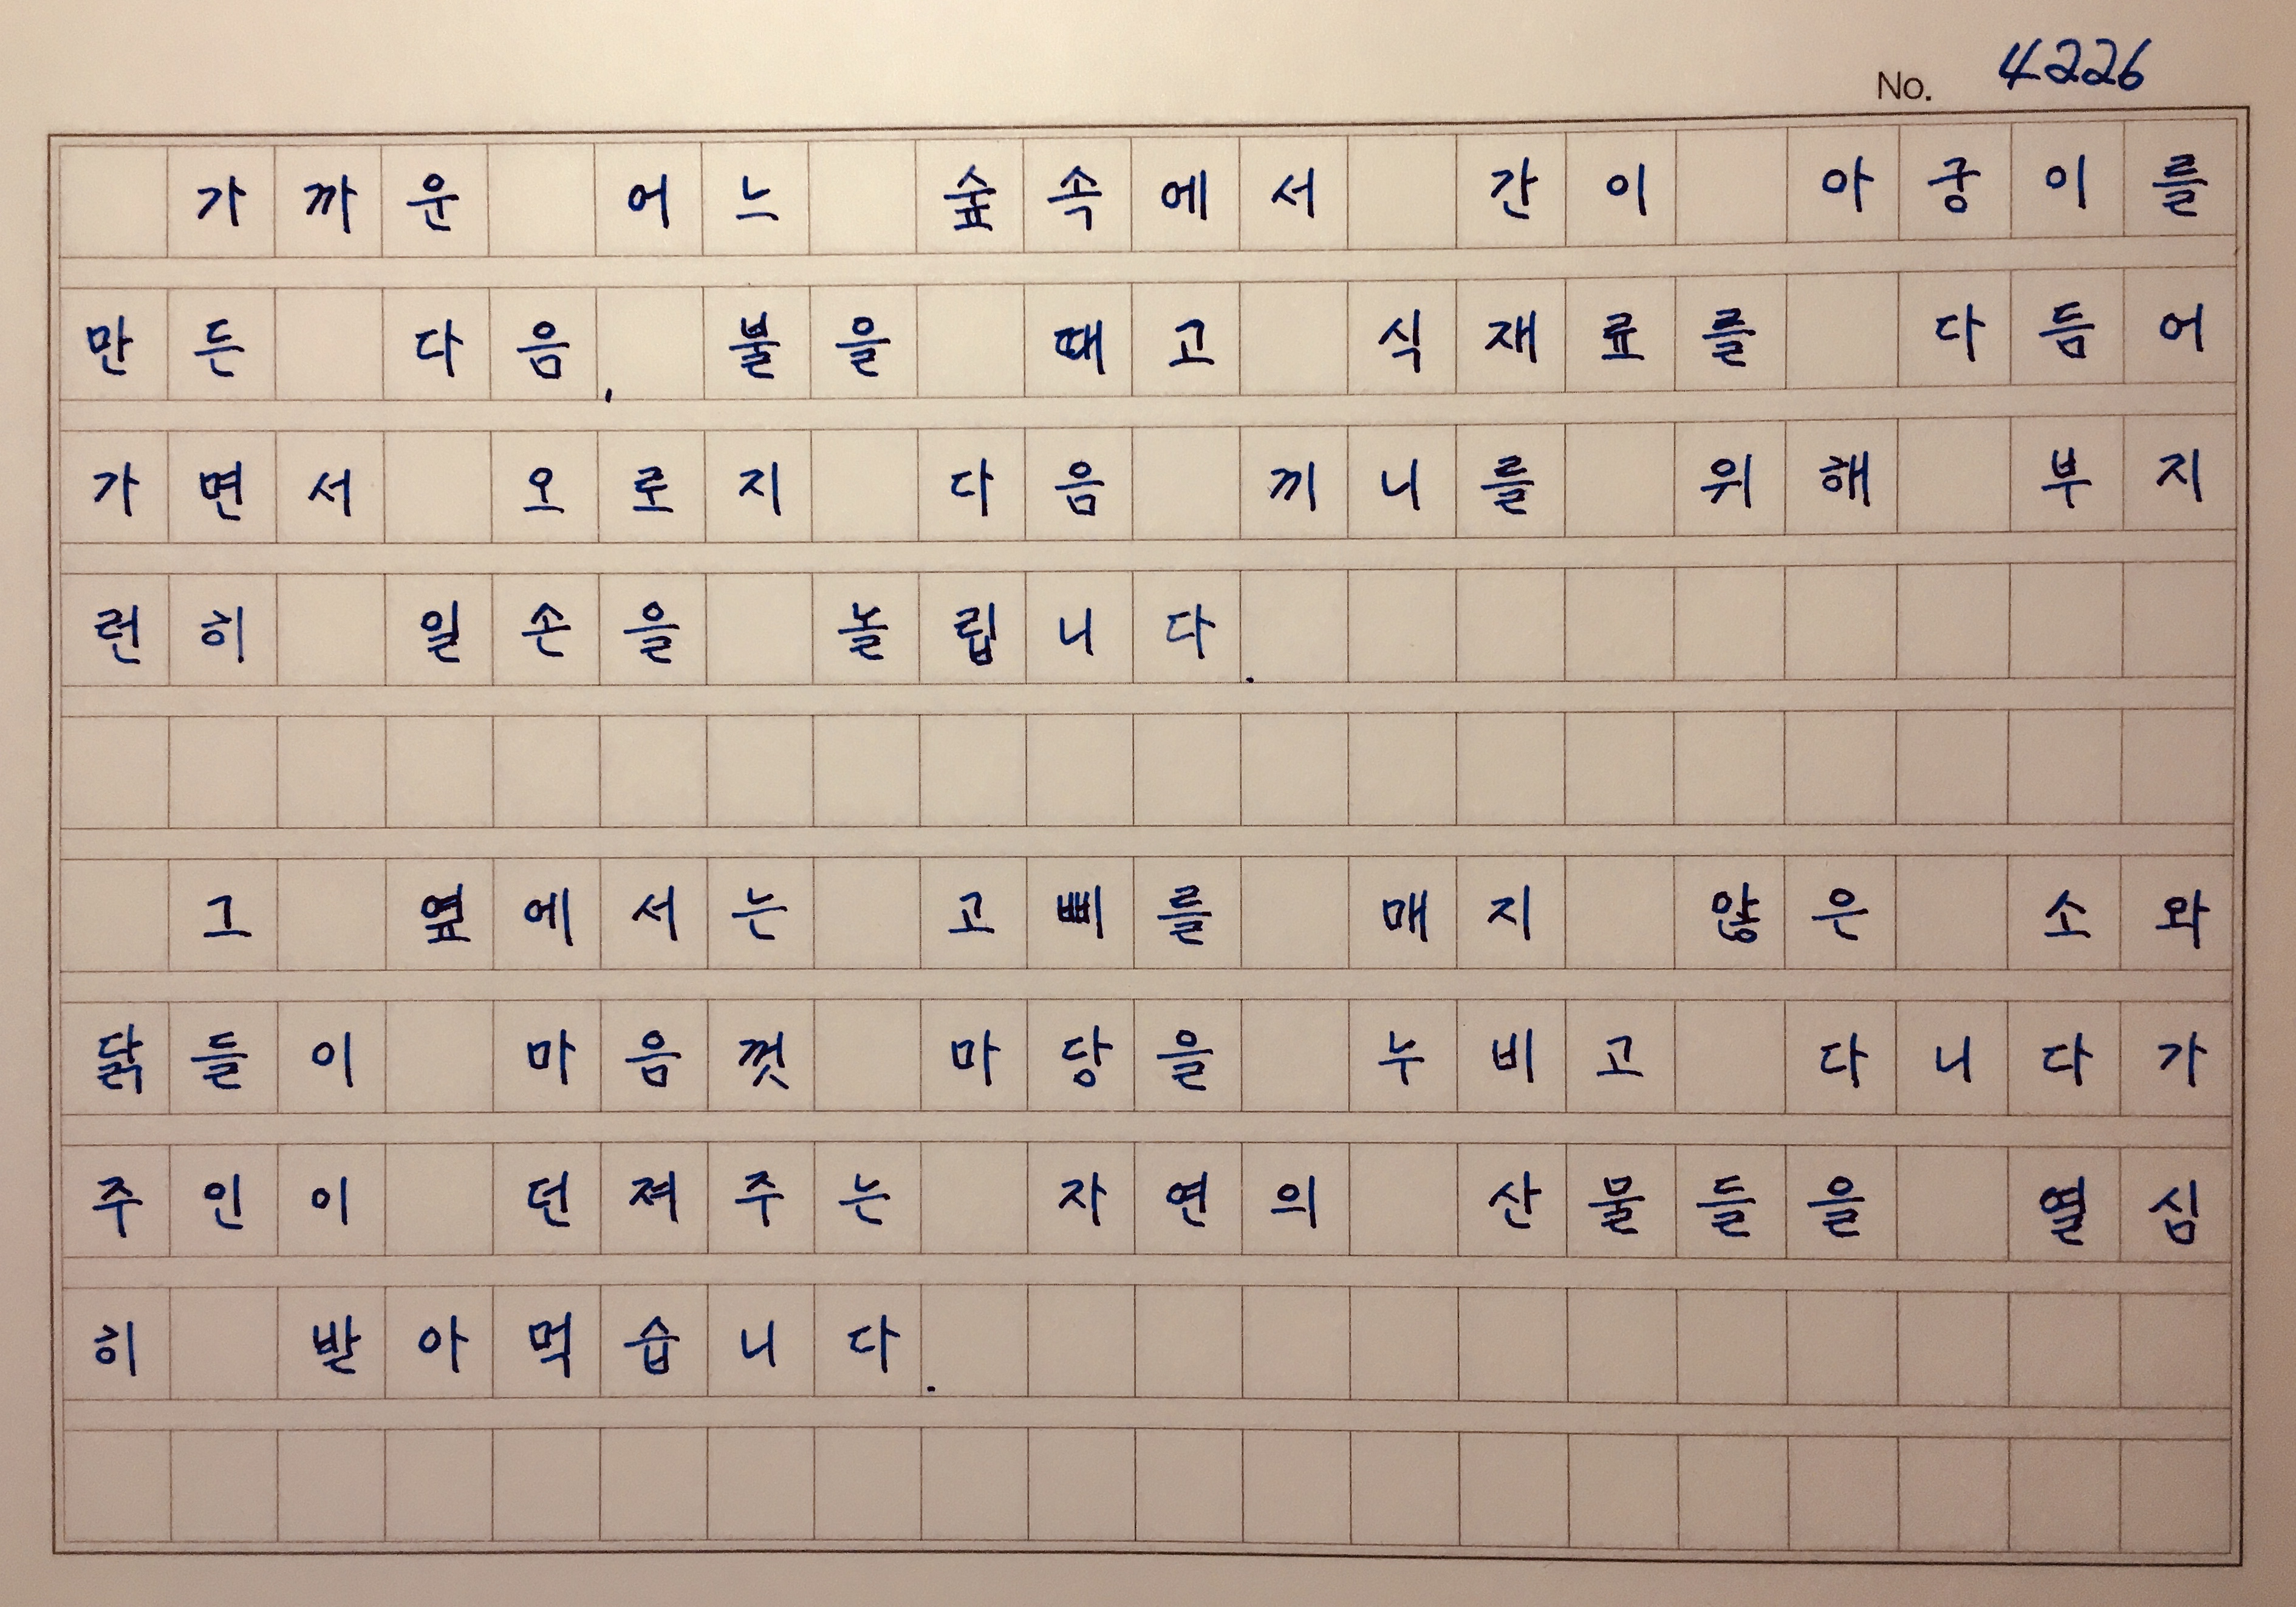 No. 4226
가까운 어느 숲속에서 간이 아궁이를
만든 다음, 불을 때고 식재료를 다듬어
가면서 오로지 다음 끼니를 위해 부지
런히 일손을 놀립니다.
그 옆에서는 고삐를 매지 않은 소와
닭들이 마음껏 마당을 누비고 다니다가
주인이 던져주는 자연의 산물들을 열심
히 받아먹습니다.